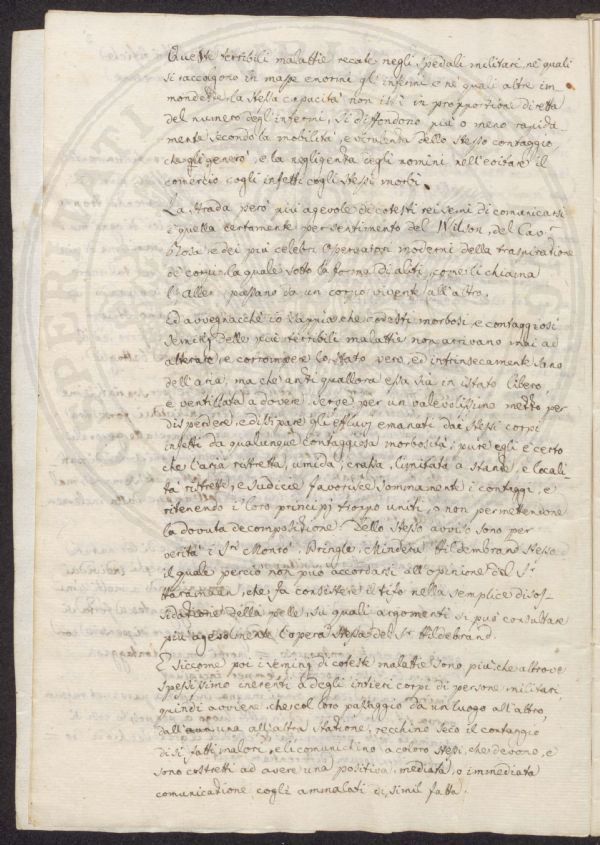 Queste terribili malattie recate negli spedali militari, ne' quali
si raccolgono in masse enormi gl' infermi e ne' quali altre im-
mondezze la stessa capacità non istà in proporzione diretta
del numero degl' infermi, si diffondono più o meno rapida-
mente secondo la mobilità, e virulenza dello stesso contaggio
che gli generò, e la negligenza degli uomini nell' evitare il
comercio cogli infetti cogli stessi morbi.
La strada però più agevole di cotesti rei semi di comunicarsi
è quella certamente per sentimento del Wilson, del Cav.r
Rosa e dei più celebri Osservatori moderni della traspirazione
de' corpi la quale sotto la forma di aliti, come li chiama
l' Aller passano da un corpo vivente all' altro.
Ed avvegnacchè io sappia che cotesti morbosi, e contaggiosi
semi delle più terribili malattie non arrivano mai ad
alterare, e corrompere lo stato puro, ed intrinsecamente sano
dell' aria, ma che anzi quallora essa sia in istato libero
e ventillata a dovere serve per un valevolissimo mezzo per
disperdere, e dissipare gli effluvj emanati dai stessi corpi
infetti da qualunque contaggiosa morbosità; pure egli è certo
che l' aria ristretta, umida, crassa, limitata a stanze, e locali-
tà ristrette, e sudicie favorisce sommamente i contaggi, e
ritenendo i loro principj troppo uniti, e non permettendone
la dovuta decomposizione. Dello stesso avviso sono per
verità i S.ri Monrò, Pringle, Minderer Hildembrand stesso
il quale perciò non può accordarsi all' opinione del S.r
che fa consistere il tifo nella semplice disos-
sidazione della pelle, su quali argomenti si può consultare
più agevolmente l' opera stessa del S.r Hildebrand.
E siccome poi i semi di coteste malattie sono più che altrove
spessissimo inerenti a degli intieri corpi di persone militari
quindi avviene che col loro passaggio da un luogo all' altro,
dall' una all' altra stazione, rechino seco il contaggio
di sì fatti malori, e li comunichino a coloro stessi, che devono, e
sono costretti ad avere una positiva, mediata, o immediata
comunicazione cogli ammalati di simil fatta.